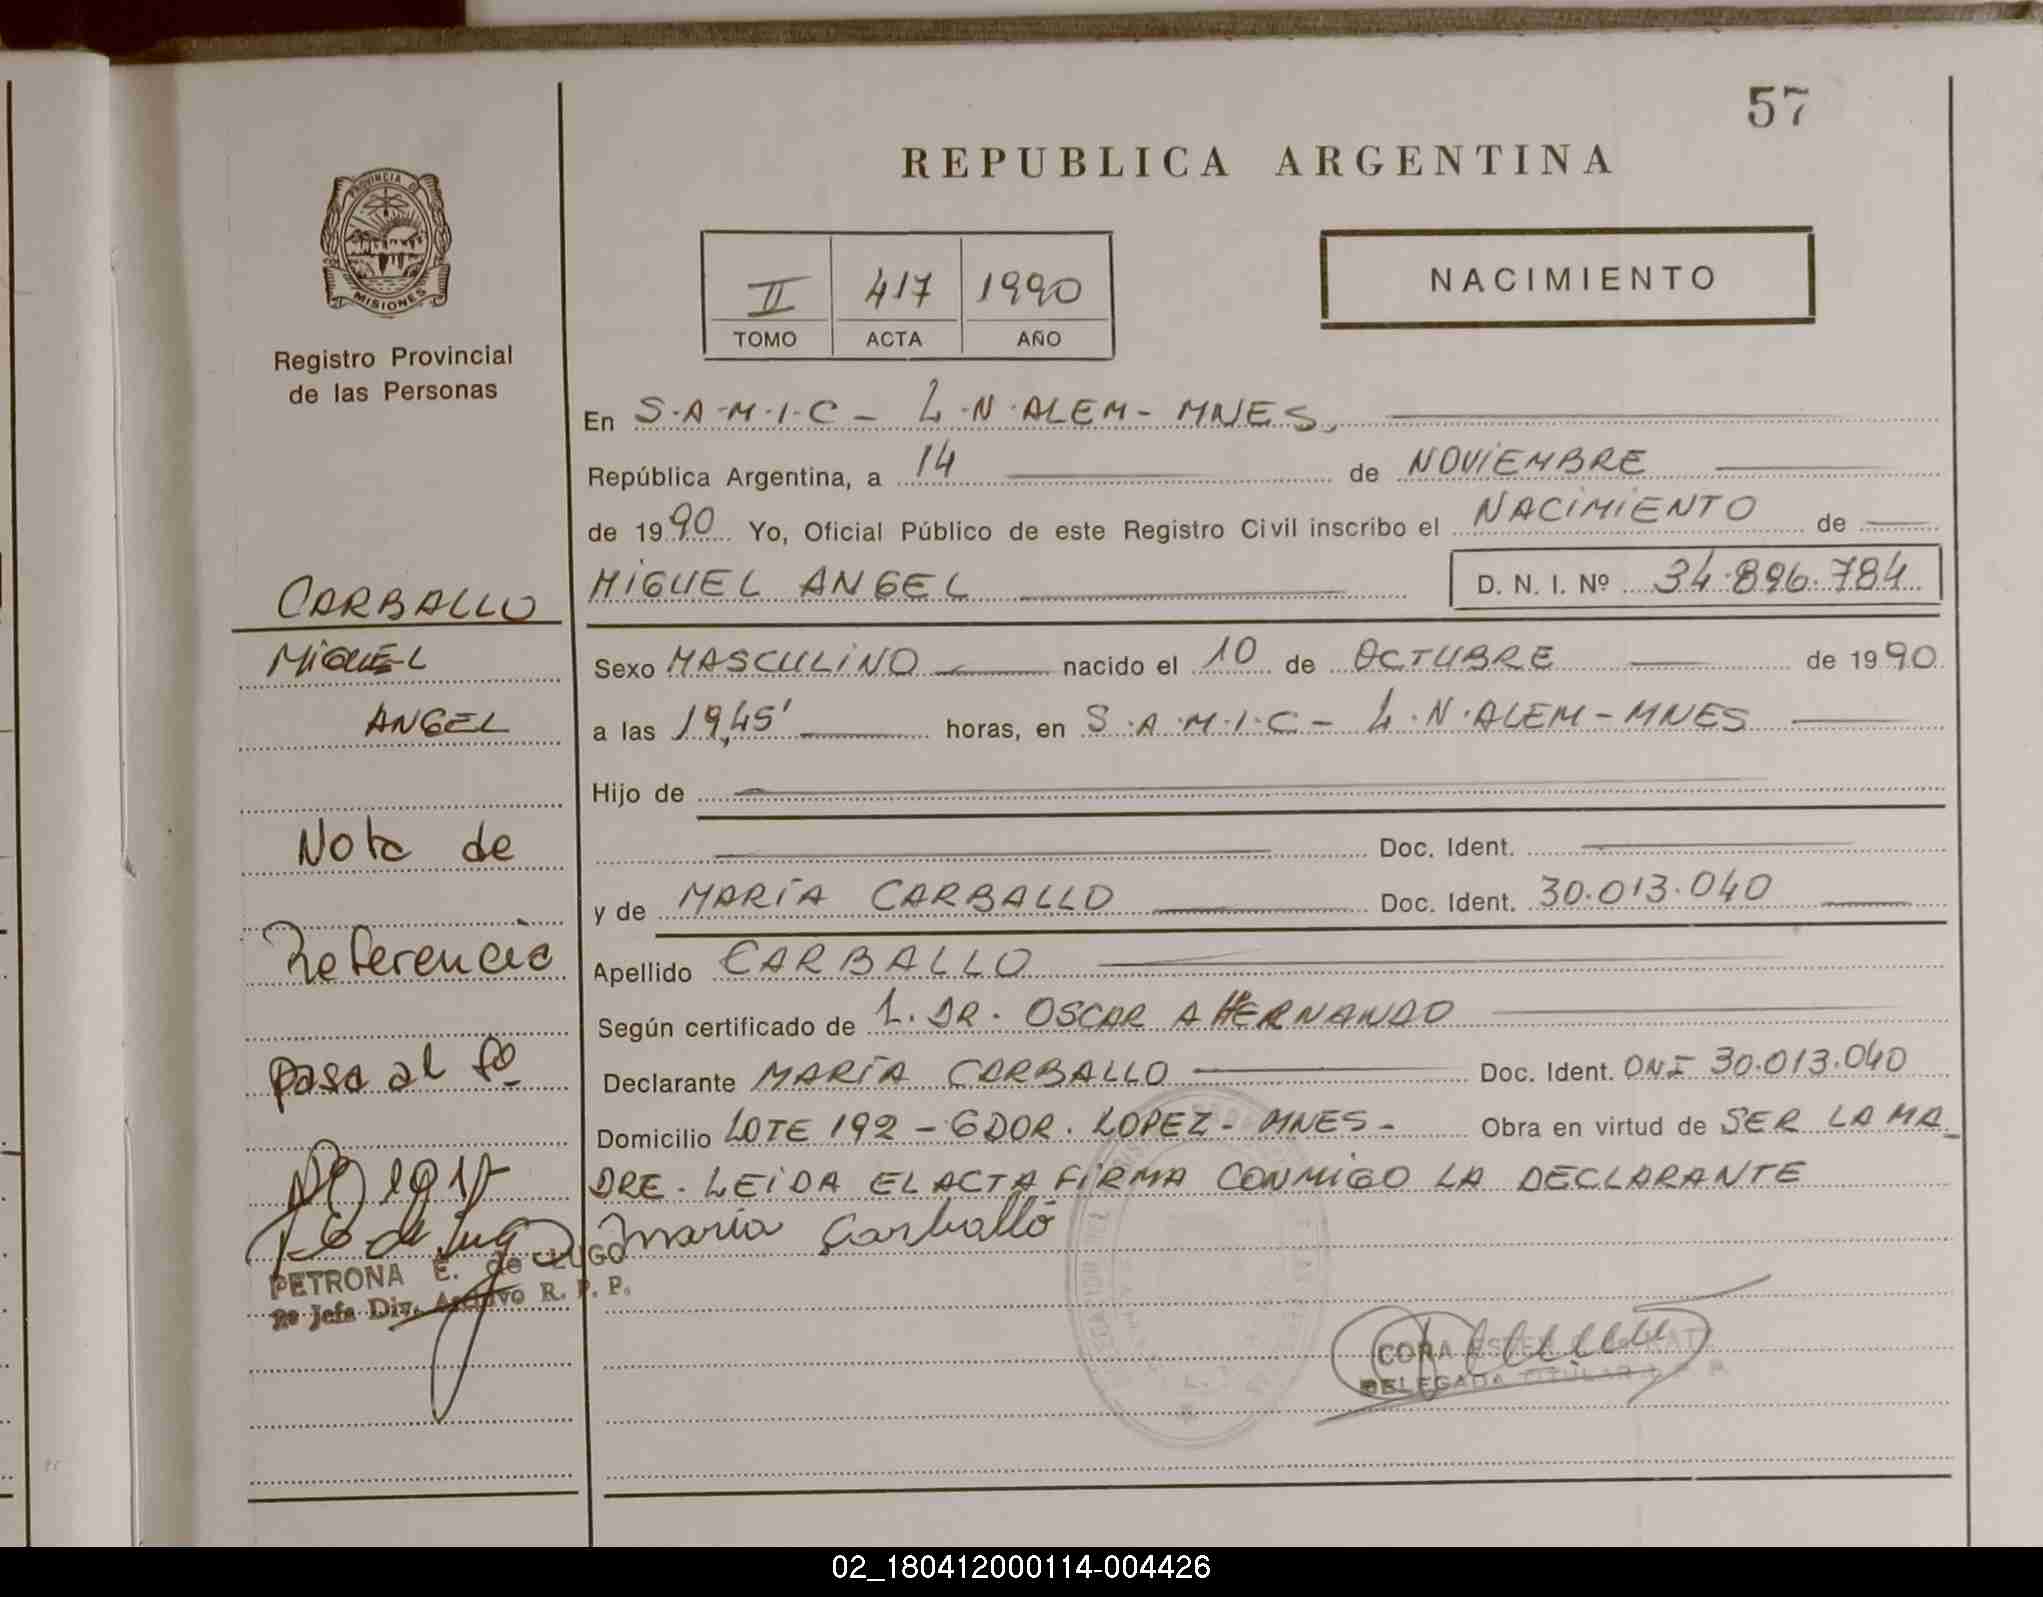 57
REPUBLICA ARGENTINA
PROVINCIA DE
MISIONES
Registro Provincial
de las Personas
II 417 1990
TOMO ACTA AÑO
NACIMIENTO
En S.A.M.I.C - L.N.ALEM - MNES,
República Argentina, a 14 de NOVIEMBRE
de 1990 Yo, Oficial Público de este Registro Civil inscribo el NACIMIENTO de
MIGUEL ANGEL D. N. I. Nº 34.896.784
Sexo MASCULINO nacido el 10 de OCTUBRE de 1990
a las 19,45' horas, en S.A.M.I.C - L.N.ALEM - MNES
Hijo de
Doc. Ident.
y de MARÍA CARBALLO Doc. Ident. 30.013.040
Apellido CARBALLO
Según certificado de L. DR. OSCAR A HERNANDO
Declarante MARÍA CARBALLO Doc. Ident. DNI 30.013.040
Domicilio LOTE 192 - GDOR. LOPEZ - MNES - Obra en virtud de SER LA MA_
DRE. LEIDA EL ACTA FIRMA CONMIGO LA DECLARANTE
Maria Carballo
CORA ESTER
DELEGADA TITULAR
CARBALLO
MIGUEL
ANGEL
Nota de
Referencia
pasa al fº
PETRONA E. de LUGO
2º Jefa Div. Archivo R. P. P.
02_180412000114-004426